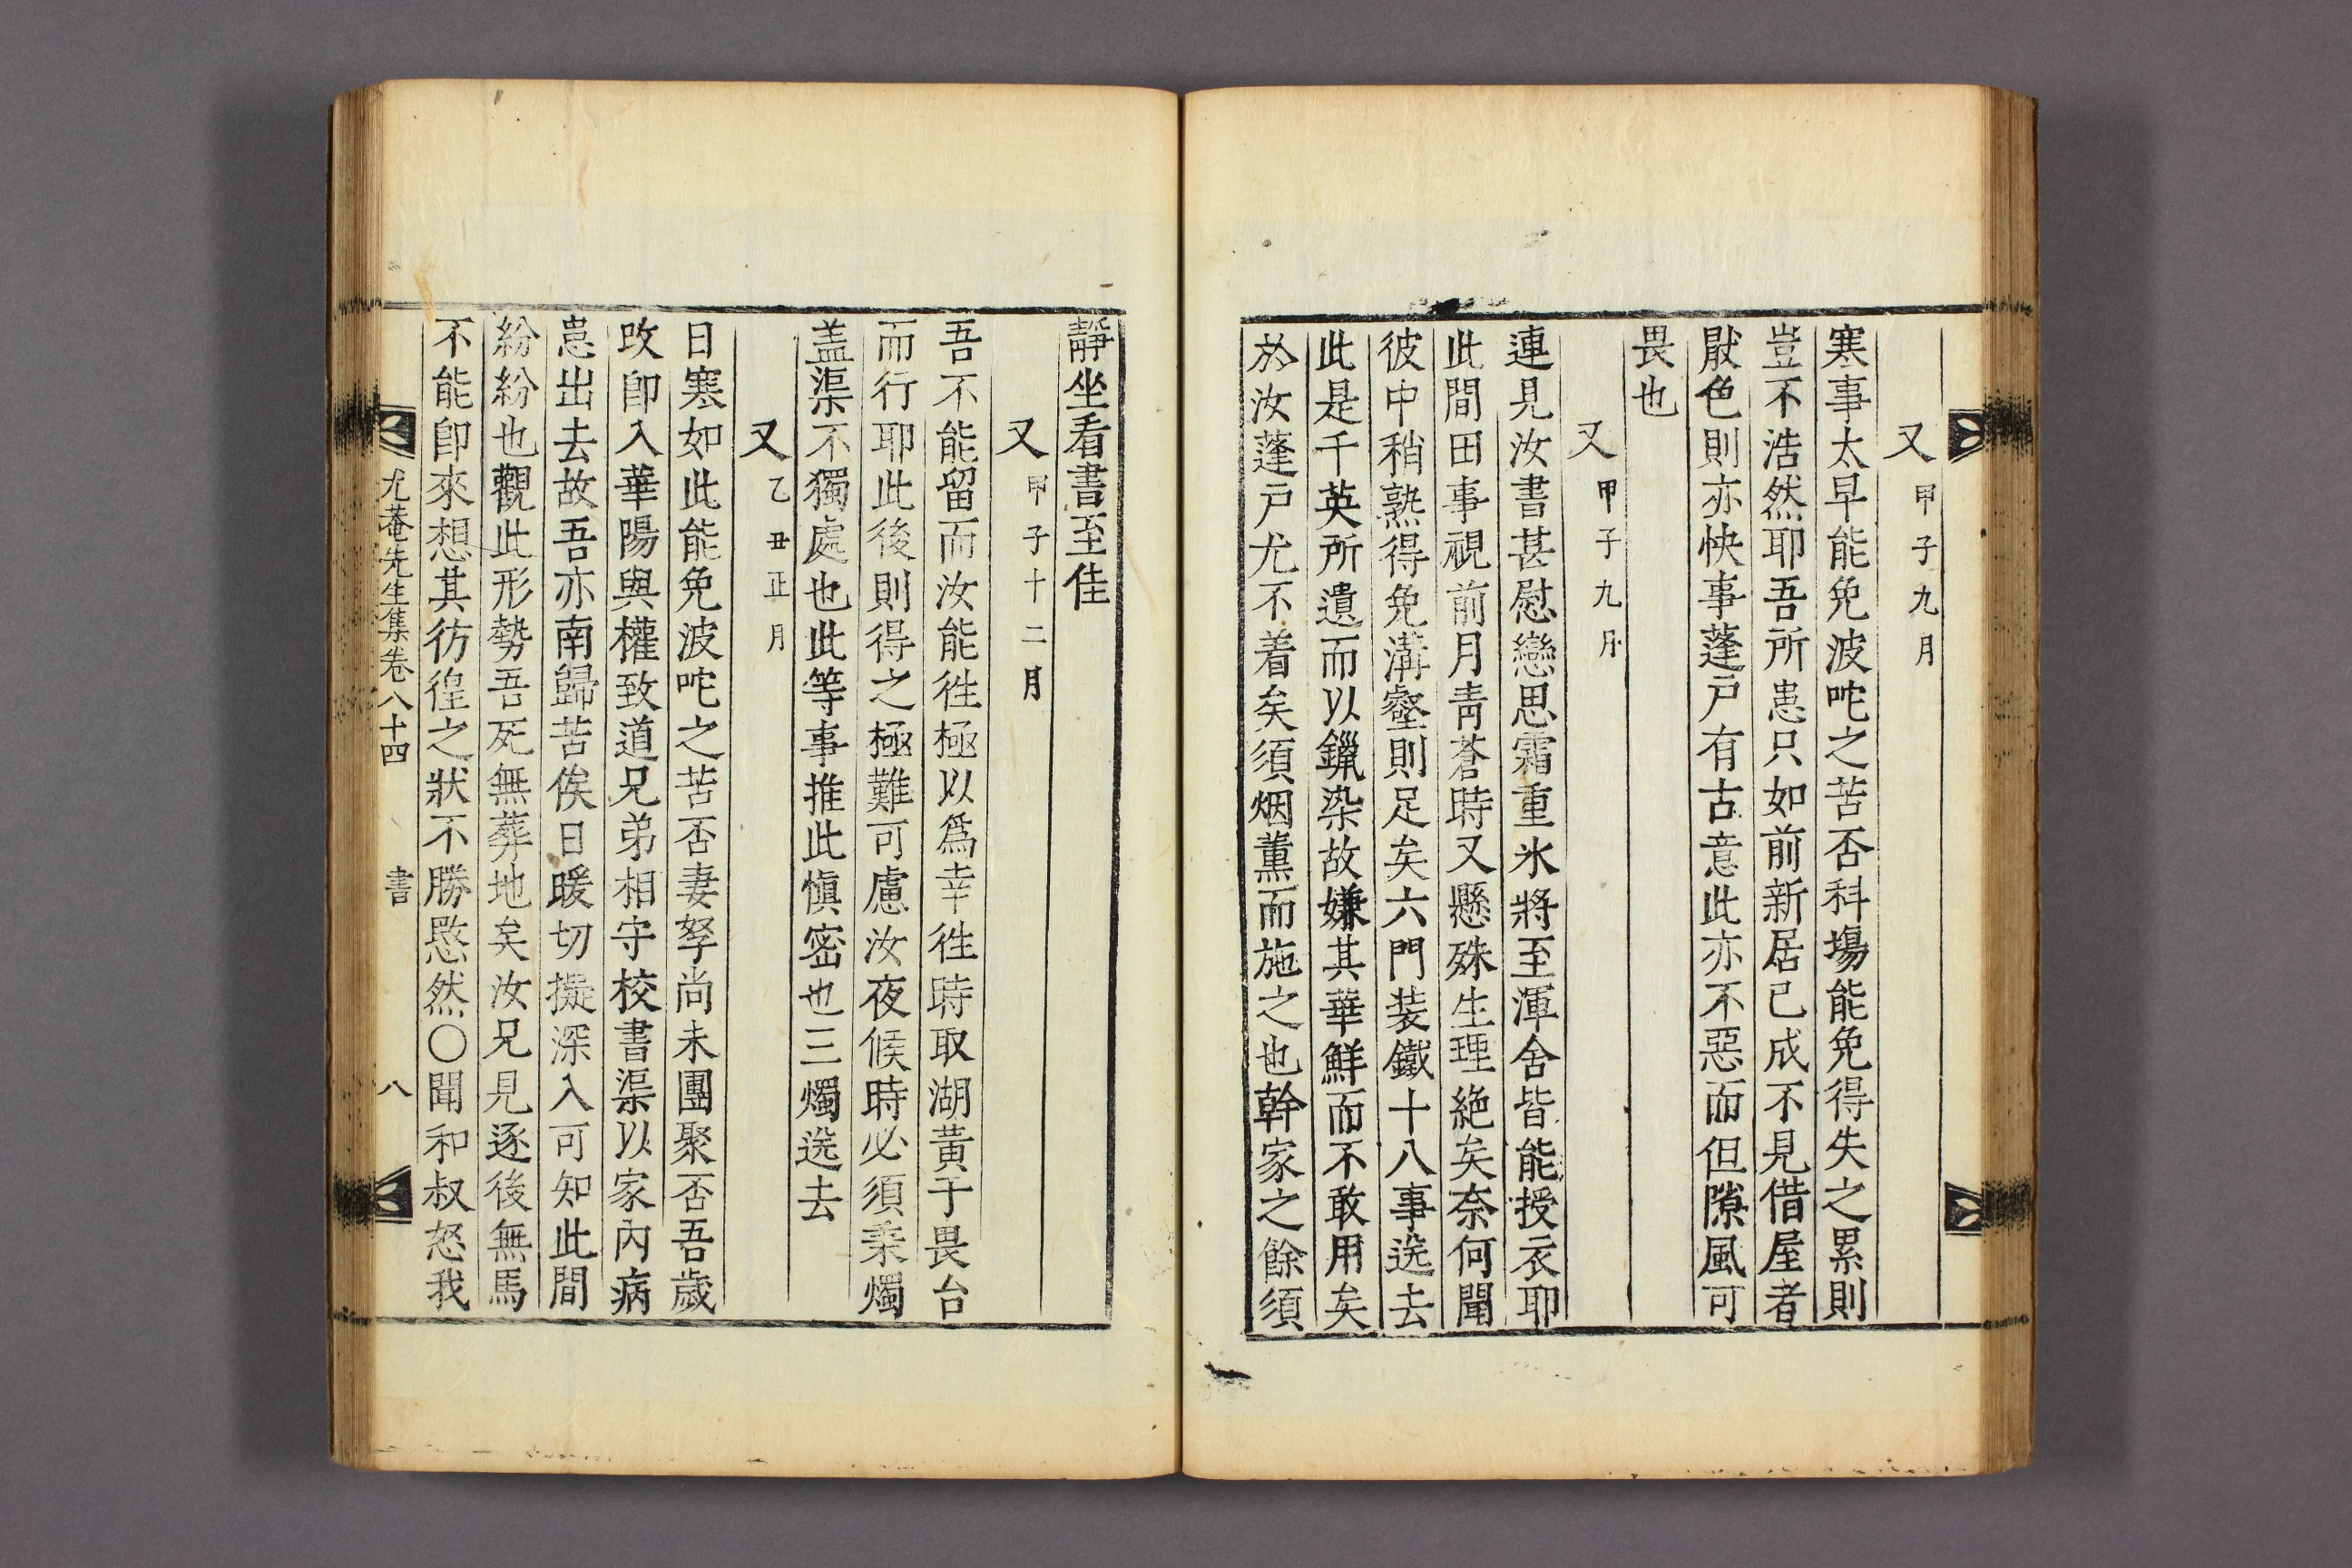 又 甲子九月
寒事太早能免波咤之苦否科場能免得失之累則
豈不浩然耶吾所患只如前新居已成不見借屋者
厭色則亦快事蓬戶有古意此亦不惡而但隙風可
畏也
又 甲子九月
連見汝書甚慰戀思霜重氷將至渾舍皆能授衣耶
此間田事視前月靑蒼時又懸殊生理絶矣奈何聞
彼中稍熟得免溝壑則足矣六門装鐵十八事送去
此是千英所遺而以鑞染故嫌其華鮮而不敢用矣
於汝蓬戶尤不着矣須烟薰而施之也幹家之餘須
靜坐看書至佳
又 甲子十二月
吾不能留而汝能徃極以爲幸徃時取湖黃于畏台
而行耶此後則得之極難可慮汝夜候時必須秉燭
盖渠不獨處也此等事推此愼密也三燭送去
又 乙丑正月
日寒如此能免波咤之苦否妻孥尚未團聚否吾歲
改卽入華陽與權致道兄弟相守校書渠以家內病
患出去故吾亦南歸苦俟日暖切擬深入可知此間
紛紛也觀此形勢吾死無葬地矣汝兄見逐後無馬
不能卽來想其彷徨之狀不勝愍然○聞和叔怒我
尤菴先生集卷八十四 書 八